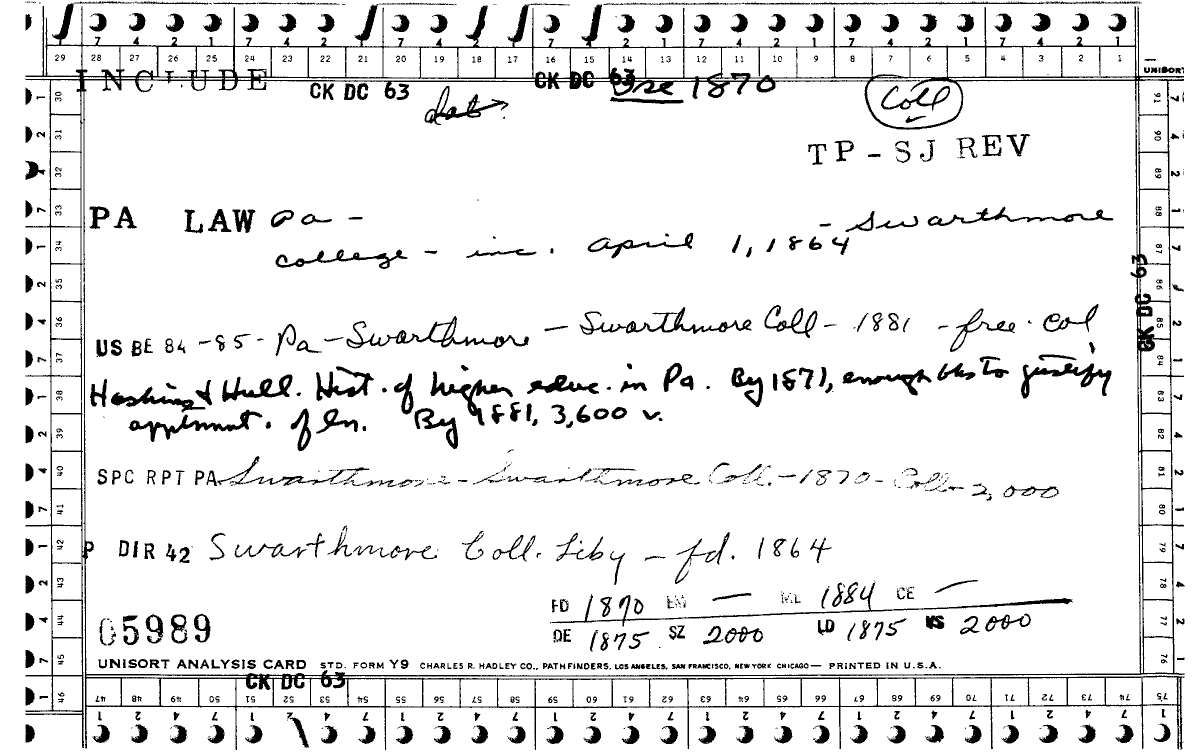 7 4 2 1 7 4 2 1 7 4 2 1 7 4 2 1 7 4 2 1 7 4 2 1 7 4 2 1
29 28 27 26 25 24 23 22 21 20 19 18 17 16 15 14 13 12 11 10 9 8 7 6 5 4 3 2 1
UNISORT
INCLUDE CK DC 63 CK DC 63 Use 1870 Coll
dat?
TP-SJ REV
PA LAW Pa - - Swarthmore
college - inc. April 1, 1864
CK DC 63
US BE 84-85- Pa-Swarthmore - Swarthmore Coll - 1881 - free. col
Haskins & Hull. Hist. of higher educ. in Pa. By 1871, enough bks to justify
apptmnt. of ln. By 1881, 3,600 v.
SPC RPT PA Swarthmore - Swarthmore Coll. - 1870 - Coll - 2,000
P DIR 42 Swarthmore Coll. Liby - fd. 1864
FD 1870 EM — ML 1884 CE —
05989
DE 1875 SZ 2000 LD 1875 VS 2000
UNISORT ANALYSIS CARD STD. FORM Y9 CHARLES R. HADLEY CO., PATHFINDERS, LOS ANGELES, SAN FRANCISCO, NEW YORK CHICAGO— PRINTED IN U.S.A.
CK DC 63
47 48 49 50 51 52 53 54 55 56 57 58 59 60 61 62 63 64 65 66 67 68 69 70 71 72 73 74 75
1 2 4 7 1 2 4 7 1 2 4 7 1 2 4 7 1 2 4 7 1 2 4 7 1 2 4 7 1